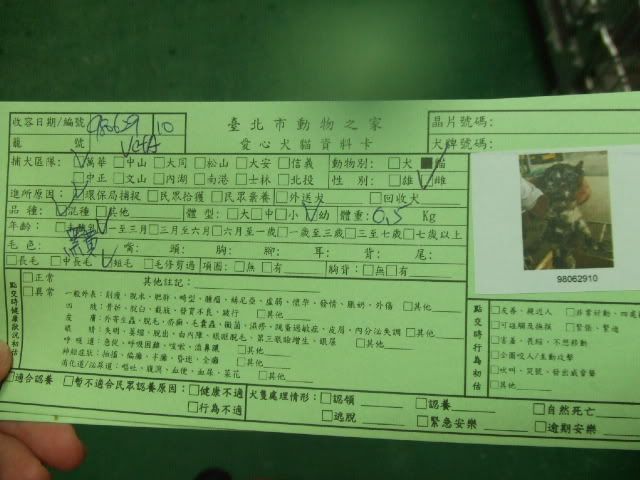 收容日期/編號 980629 10 臺北市動物之家 晶片號碼:
籠 號 愛心犬貓資料卡 犬牌號碼:
捕犬區隊: ☑萬華 □中山 □大同 □松山 □大安 □信義 動物別: □犬 ■貓
□中正 □文山 □內湖 □南港 □士林 □北投 性 別: □雄 ☑雌
進所原因: ☑環保局捕捉 □民眾拾獲 □民眾棄養 □外送犬 □回收犬
品 種: ☑混種 □其他 體 型: □大 □中 □小 ☑幼 體重: 0.5 Kg
年齡: ☑一至三月 □三月至六月 □六月至一歲 □一歲至三歲 □三至七歲 □七歲以上
毛 色: 黑黃 嘴: 頭: 胸: 腳: 耳: 背: 尾:
□長毛 □中長毛 ☑短毛 □毛修剪過 項圈: □無 □有 胸背: □無 □有
98062910
點交時健康狀況初估
□正常 其他註記:
□異常 一般外表: 削瘦、脫水、肥胖、畸型、腫瘤、赫尼亞、虛弱、懷孕、發情、脹奶、外傷 □其他
四 肢: 骨折、脫臼、截肢、發育不良、跛行 □其他
皮 膚: 外寄生蟲、脫毛、疥癬、毛囊蟲、黴菌、濕疹、跳蚤過敏症、皮屑、內分泌失調 □其他
眼 睛: 失明、萎縮、脫出、白內障、眼瞼脫毛、第三眼瞼增生、眼屎 □其他
呼吸道: 急促、呼吸困難、咳嗽、流鼻膿 □其他
神經症狀: 抽搐、偏癱、半癱、昏迷、全癱 □其他
消化道/泌尿道: 嘔吐、腹瀉、血便、血尿、菜花 □其他
點交時行為初估
□友善、親近人 □非常好動、四處
□可碰觸及撫摸 □緊張、緊迫
□害羞、畏縮、不想移動
□企圖咬人/主動攻擊
□吠叫、哭號、發出威脅聲
□其他
□適合認養 □暫不適合民眾認養原因: □健康不適 犬隻處理情形: □認領 □認養 □自然死亡
□行為不適 □逃脫 □緊急安樂 □逾期安樂